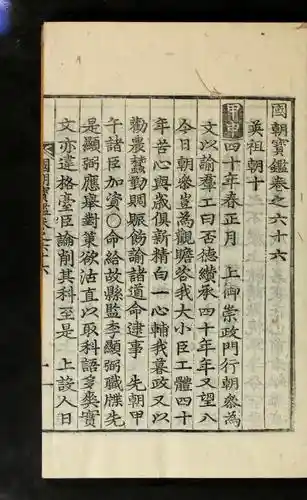 國朝寶鑑卷之六十六
英祖朝十
甲申四十年春正月 上御崇政門行朝參爲
文以諭羣工曰否德纉承四十年年又望八
今日朝參豈爲觀瞻咨我大小臣工體四十
年苦心與歲俱新精白一心輔我暮政又以
勸農蠶勤賙賑飭諭諸道命逮事 先朝甲
午諸臣加資〇命給故縣監李顯弼職牒先
是顯弼應舉對策欲沽直以取科語多爽實
文亦違格臺臣論削其科至是 上設人日
國朝寶鑑卷六十六 一